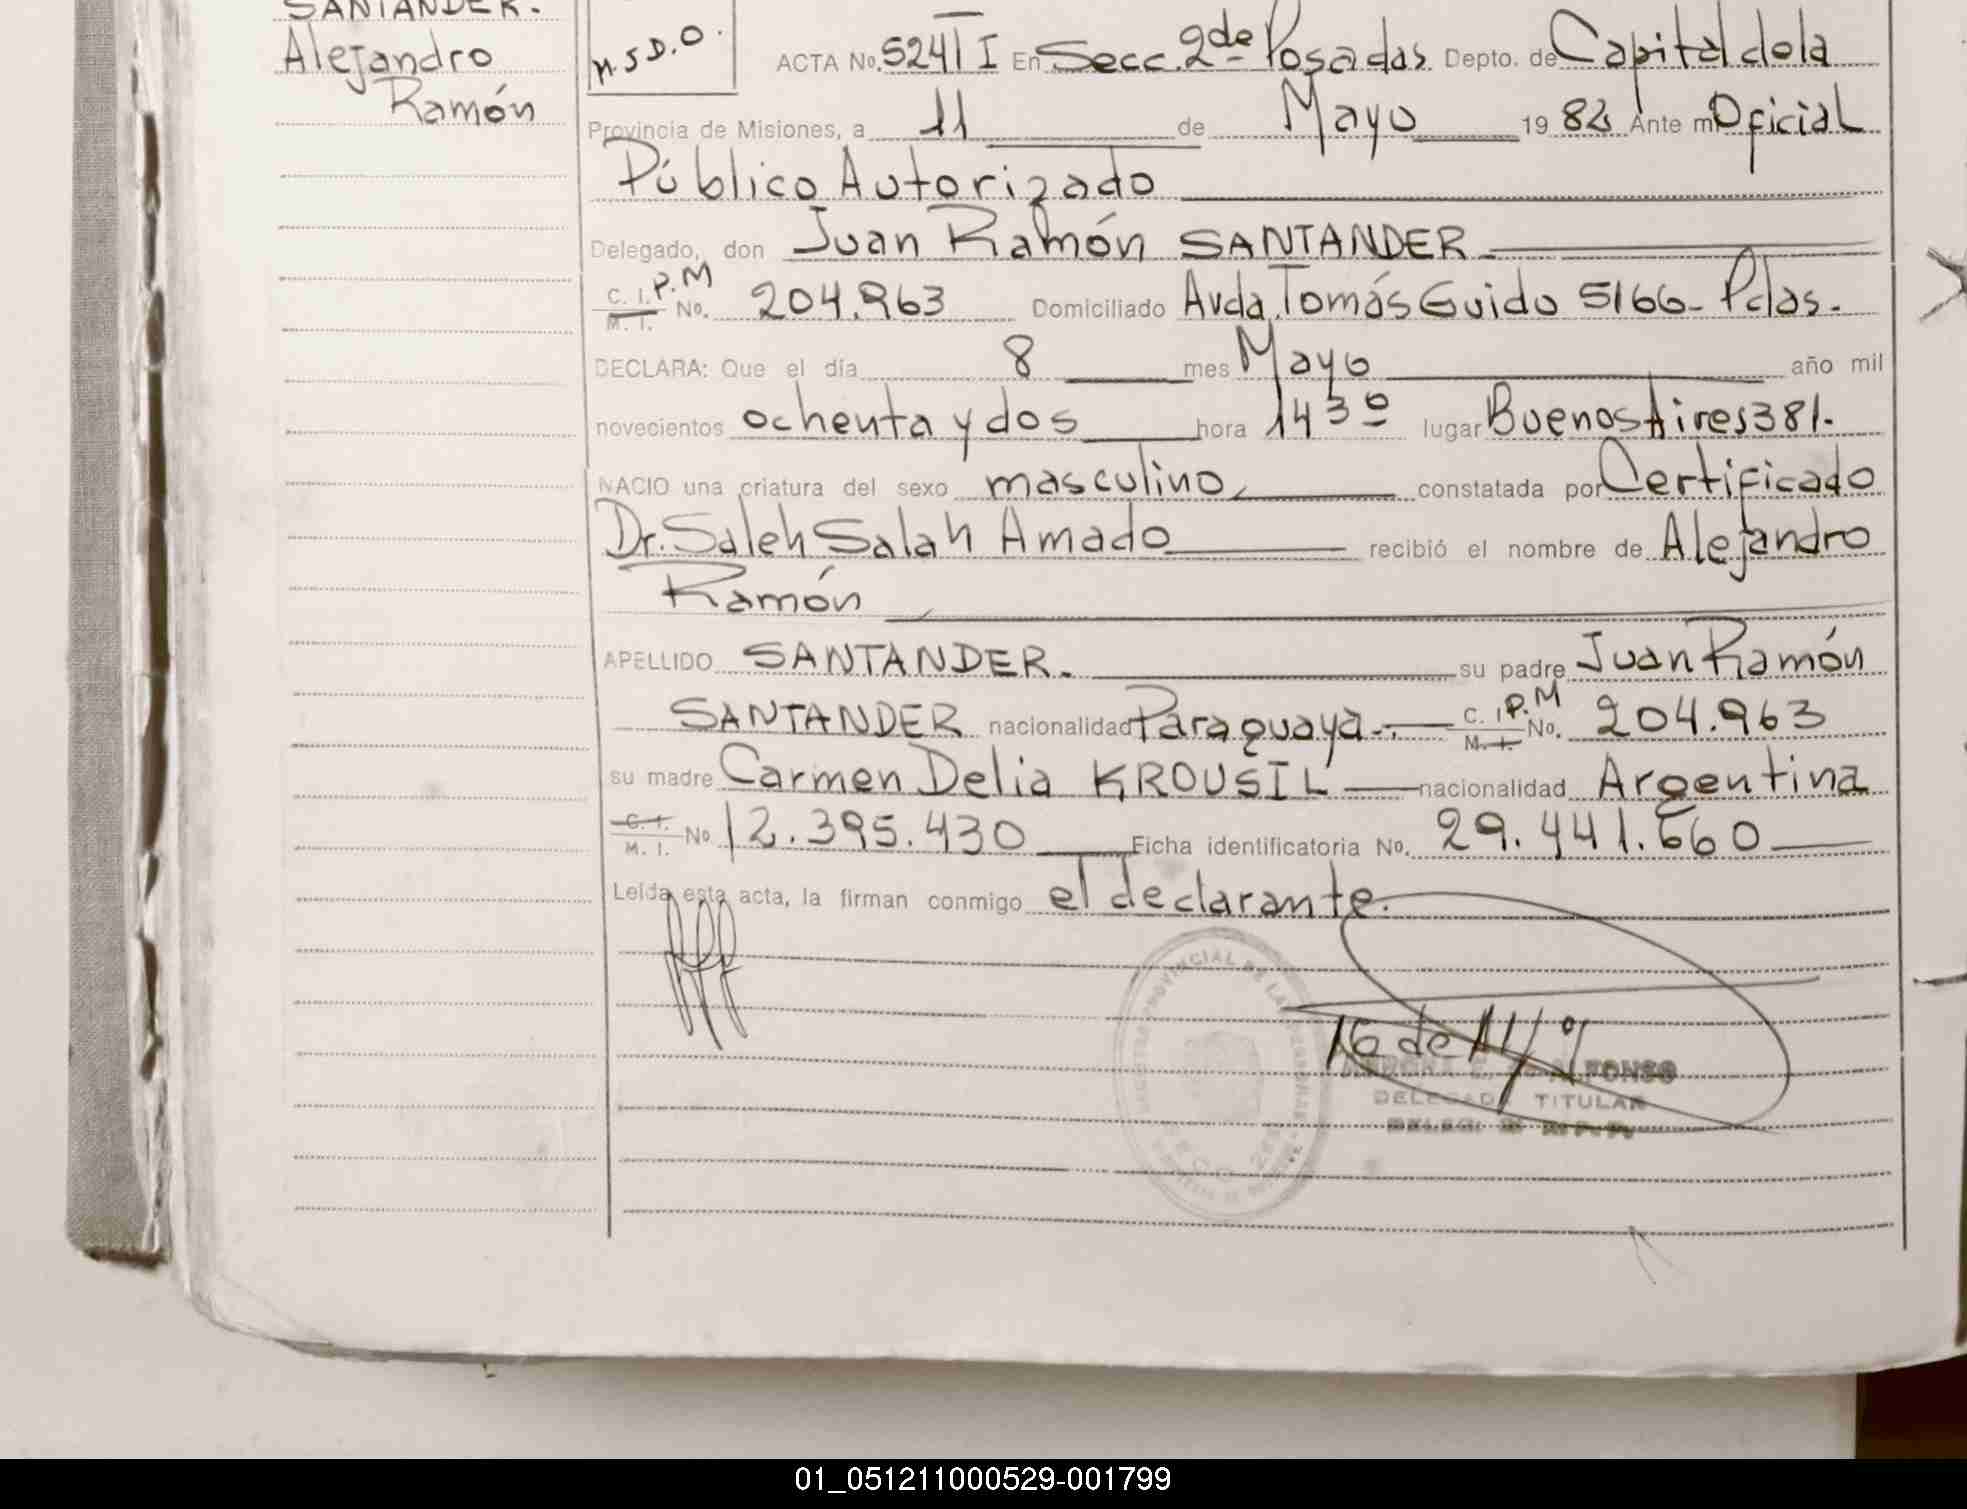 SANTANDER.
Alejandro
Ramón
M.S D.O.
ACTA No. 524 I I En Secc. 2da Posadas Depto. de Capital de la
Provincia de Misiones, a 11 de Mayo 19 82 Ante mi Oficial
Público Autorizado
Delegado, don Juan Ramón SANTANDER
C. I. P.M
M. I. No. 204.963 Domiciliado Avda. Tomás Guido 5166- Pdas.
DECLARA: Que el día 8 mes Mayo año mil
novecientos ochenta y dos hora 14 30 lugar Buenos Aires 381.
NACIO una criatura del sexo masculino constatada por Certificado
Dr. Saleh Salah Amado recibió el nombre de Alejandro
Ramón
APELLIDO SANTANDER. su padre Juan Ramón
SANTANDER nacionalidad Paraguaya.- C. I. P.M M. I. No. 204.963
su madre Carmen Delia KROUSIL nacionalidad Argentina
C. I. M. I. No 12.395.430 Ficha identificatoria No. 29.441.660
Leída esta acta, la firman conmigo el declarante.
16 de
ALFONSO
DELEGADA TITULAR
01_051211000529-001799